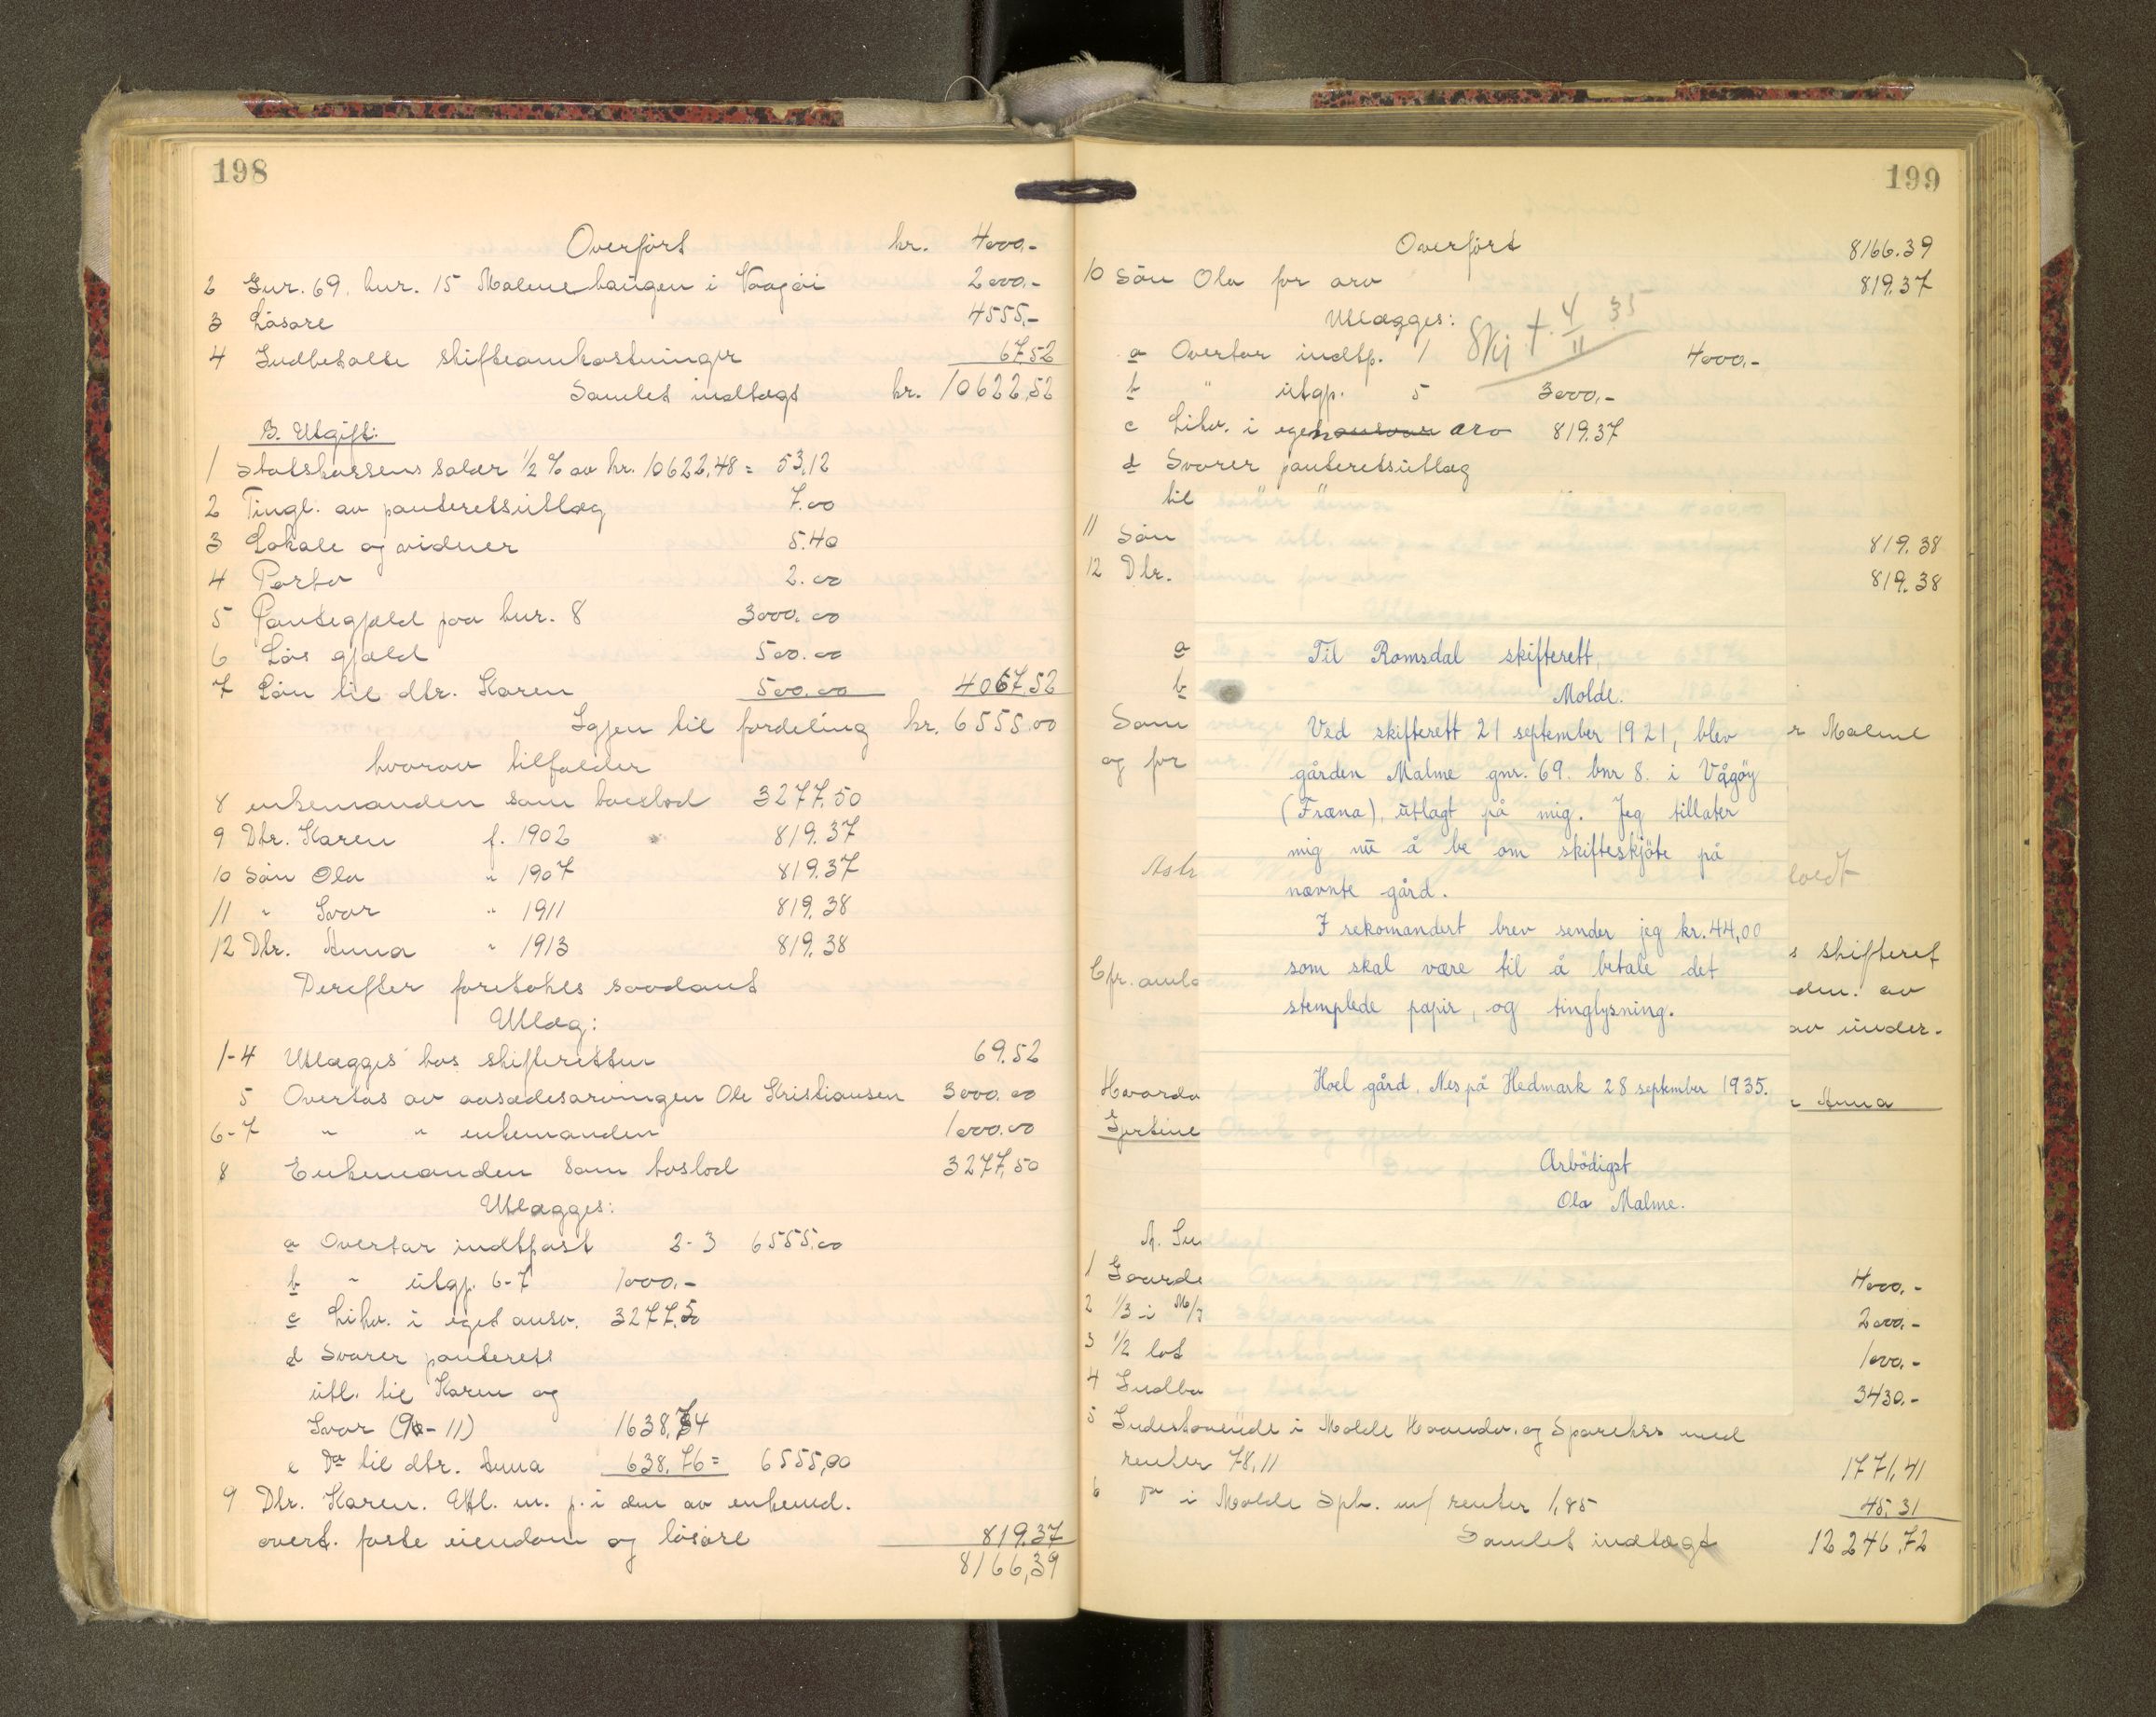 198
Overført kr. 4000.-
2 Gnr. 69. bnr. 15 Malmehaugen i Vaagøi 2000.-
3 Løsøre 4555.-
4 Indbetalte skifteomkostninger 67.52
Samlet indtægt kr. 10622,52
B. Utgift:
1 Statskassens salær ½ % av kr. 10622,48 = 53,12
2 Tingl. av panteretsutlæg 7.00
3 Lokale og vidner 5.40
4 Porto 2.00
5 Pantegjæld paa bnr. 8 3000.00
6 Løs gjæld 500.00
7 Løn til dtr. Karen 500.00 4067.52
Igjen til fordeling kr. 6555.00
hvorav tilfalder
8 enkemanden som boeslod 3277,50
9 Dtr. Karen f. 1902 819.37
10 Søn Ola " 1907 819.37
11 " Ivar " 1911 819.38
12 Dtr. Anna " 1913 819.38
Derefter foretokes saadant
Utlæg:
1-4 Utlægges hos skifteretten 69.52
5 Overtas av aasædesarvingen Ole Kristiansen 3000.00
6-7 " " enkemanden 1000.00
8 Enkemanden som boslod 3277,50
Utlægges:
a Overtar indtpost 2-3 6555.00
b " utgp. 6-7 1000.-
c Likv. i eget ansv. 3277.50
d Svarer panterets
utl. til Karen og
Ivar (9-11) 1638.74
e Do til dtr. Anna 638.76 = 6555,00
9 Dtr. Karen. Utl. m. p. i den av enkemd.
overt. faste eiendom og løsøre 819.37
8166,39
199
Overført 8166.39
10 Søn Ola for arv 819.37
Utlægges:
Skj t. 4/11 35
a Overtar indtp. 1 4000.-
b " utgp. 5 3000.-
c Likv. i egen arv 819.37
d Svarer panteretsutlæg
til
11 Søn 819.38
12 Dtr. 819.38
a
b
Som r Malme
og for
Til Romsdal skifterett,
Molde.
Ved skifterett 21 september 1921, blev
gården Malme gnr. 69. bnr 8. i Vågöy
(Fræna), utlagt på mig. Jeg tillater
mig nu å be om skifteskjöte på
nævnte gård.
I rekomandert brev sender jeg kr. 44,00
som skal være til å betale det
stemplede papir, og tinglysning.
Hoel gård. Nes på Hedmark 28 september 1935.
Ærbödigst
Ola Malme.
s skifteret
den. av
av under-
Anna
A. In
1 Gaarde 4000.-
2 1/3 i M/ 2000.-
3 1/2 lot 1000.-
4 Indbo 3430.-
5 Indestaaende i Molde Haandv. og Sparekss med
renter 78,11 1771,41
6 Do i Molde Spb. m/ renter 1,85 45,31
Samlet indtægt 12246,72